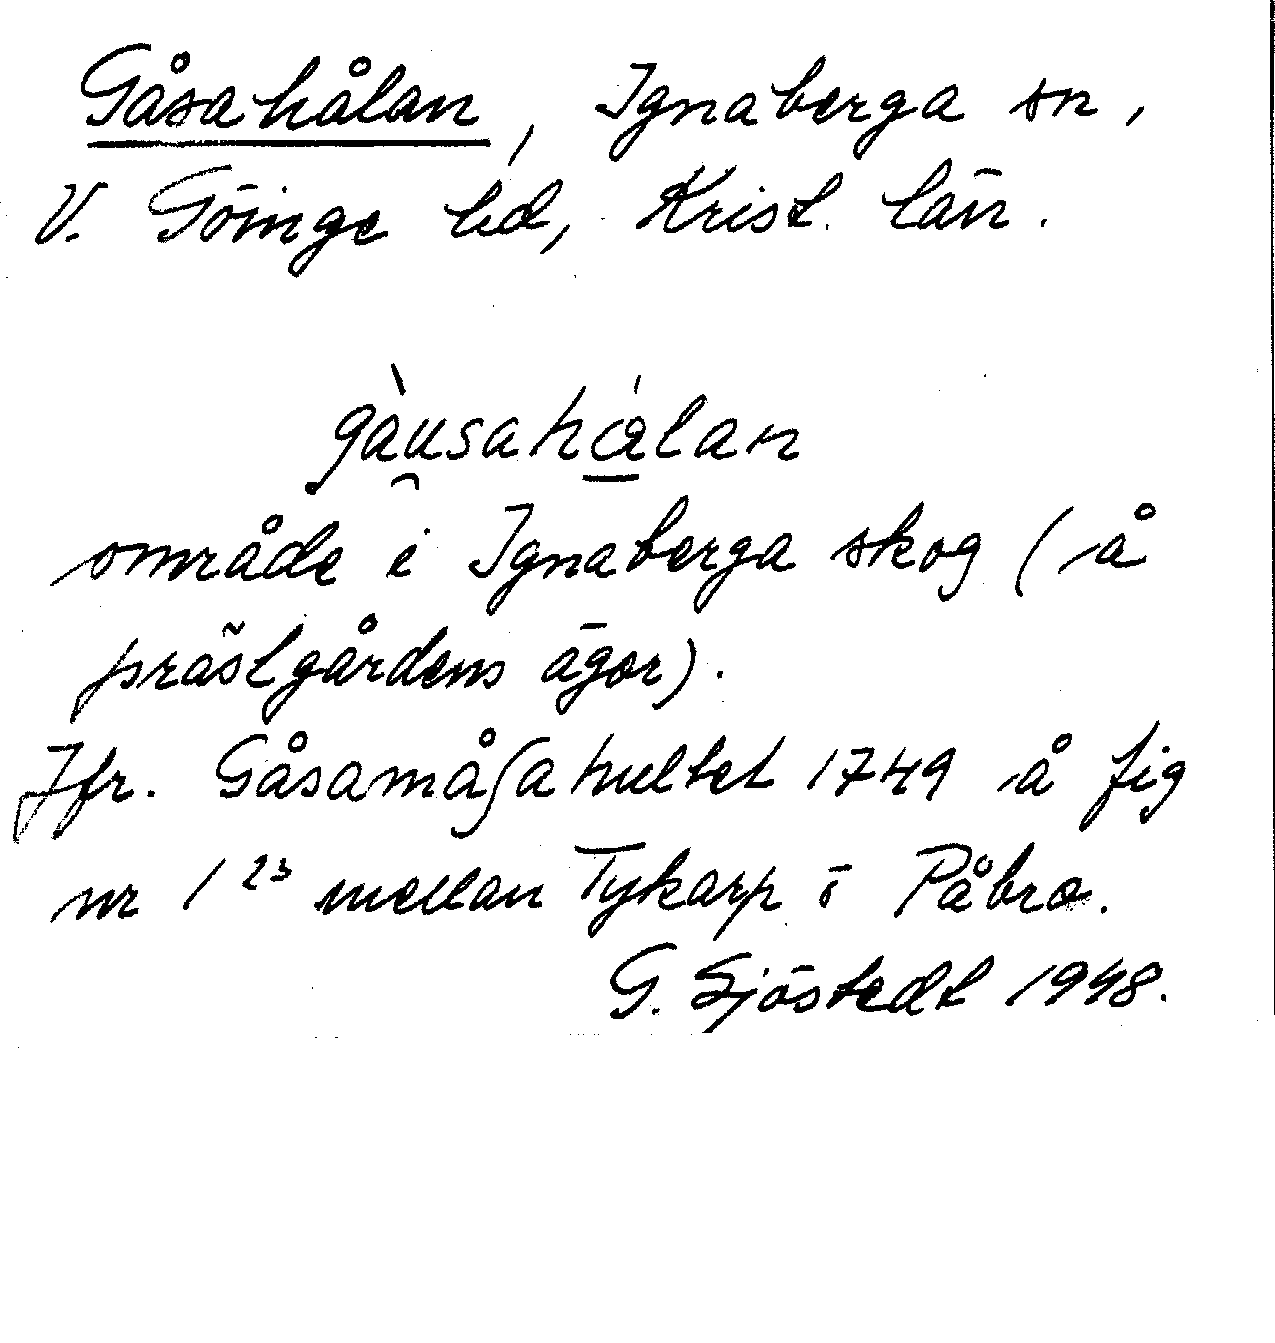 Gåsahålan, Ignaberga sn,
V. Göinge hd, Krist. län.
gàusahålan
område i Ignaberga skog (å
prästgårdens ägor).
Jfr. Gåsamåſahultet 1749 å fig
nr 1²³ mellan Tykarp ö Påbro.
G. Sjöstedt 1948.